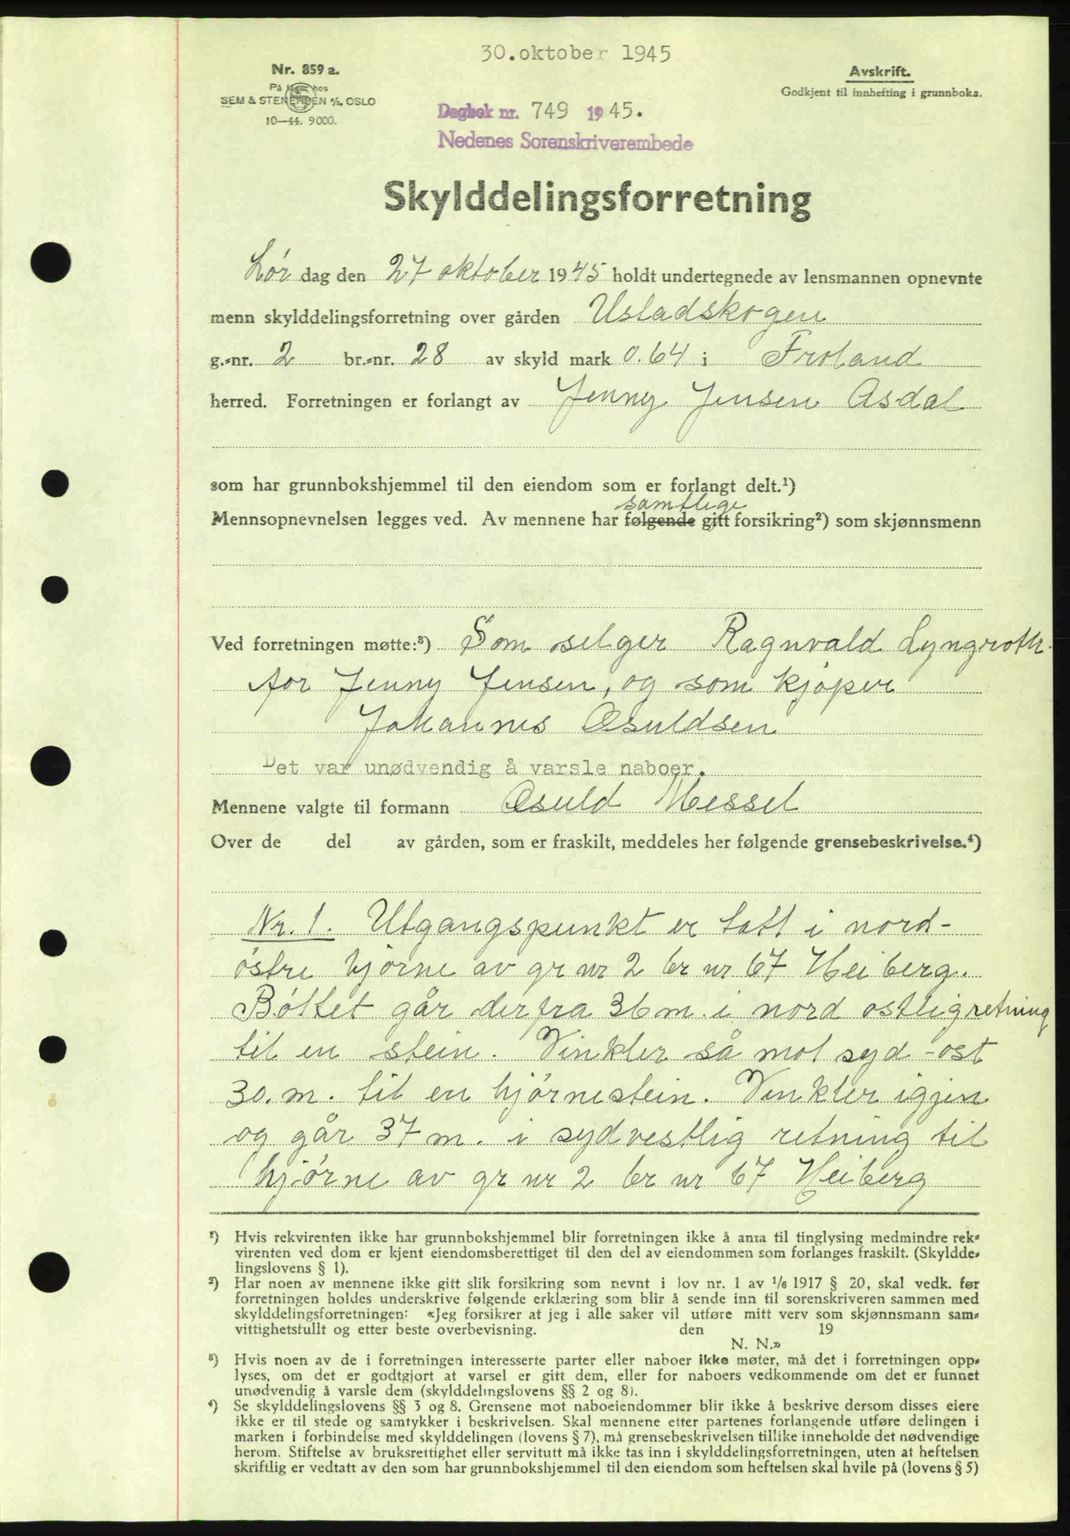 30.oktober 1945
Nr. 859 a.
På lager hos
SEM & STENERSEN A/S, OSLO
10—44. 9000.
Avskrift.
Godkjent til innhefting i grunnboka.
Dagbok nr. 749 1945.
Nedenes Sorenskriverembede
Skylddelingsforretning
Lør dag den 27 oktober 1945 holdt undertegnede av lensmannen opnevnte
menn skylddelingsforretning over gården Usladskogen
g.-nr. 2 br.-nr. 28 av skyld mark 0.64 i Froland
herred. Forretningen er forlangt av Jenny Jensen Asdal
som har grunnbokshjemmel til den eiendom som er forlangt delt.¹)
samtlige
Mennsopnevnelsen legges ved. Av mennene har følgende gitt forsikring²) som skjønnsmenn
Ved forretningen møtte:³) Som selger Ragnvald Lyngroth
for Jenny Jensen, og som kjøper
Johannes Osuldsen
Det var unødvendig å varsle naboer.
Mennene valgte til formann Osuld Messel
Over de del av gården, som er fraskilt, meddeles her følgende grensebeskrivelse.⁴)
Nr. 1. Utgangspunkt er tatt i nord-
østre hjørne av gr nr 2 br nr 67 Heiberg.
Byttet går derfra 36 m. i nord ostlig retning
til en stein. Vinkler så mot syd-ost
30. m. til en hjørnestein. Vinkler igjen
og går 37 m. i sydvestlig retning til
hjørne av gr nr 2 br nr 67 Heiberg
¹) Hvis rekvirenten ikke har grunnbokshjemmel blir forretningen ikke å anta til tinglysing medmindre rek-
virenten ved dom er kjent eiendomsberettiget til den del av eiendommen som forlanges fraskilt. (Skyldde-
lingslovens § 1).
²) Har noen av mennene ikke gitt slik forsikring som nevnt i lov nr. 1 av 1/6 1917 § 20, skal vedk. før
forretningen holdes underskrive følgende erklæring som blir å sende inn til sorenskriveren sammen med
skylddelingsforretningen: «Jeg forsikrer at jeg i alle saker vil utføre mitt verv som skjønnsmann sam-
vittighetsfullt og etter beste overbevisning. den 19
N. N.»
³) Hvis noen av de i forretningen interesserte parter eller naboer ikke møter, må det i forretningen opp-
lyses, om det er godtgjort at varsel er gitt dem, eller for naboers vedkommende om det er funnet
unødvendig å varsle dem (skylddelingslovens §§ 2 og 8).
⁴) Se skylddelingslovens §§ 3 og 8. Grensene mot naboeiendommer blir ikke å beskrive dersom disses eiere
ikke er til stede og samtykker i beskrivelsen. Skal mennene etter partenes forlangende utføre delingen i
marken i forbindelse med skylddelingen (lovens § 7), må grensebeskrivelsen tillike inneholde det nødvendige
herom. Stiftelse av bruksrettighet eller servitutt må ikke tas inn i skylddelingsforretningen, uten at heftelsen
skriftlig er vedtatt av den som har grunnbokshjemmel til den eiendom som heftelsen skal hvile på (lovens § 5)